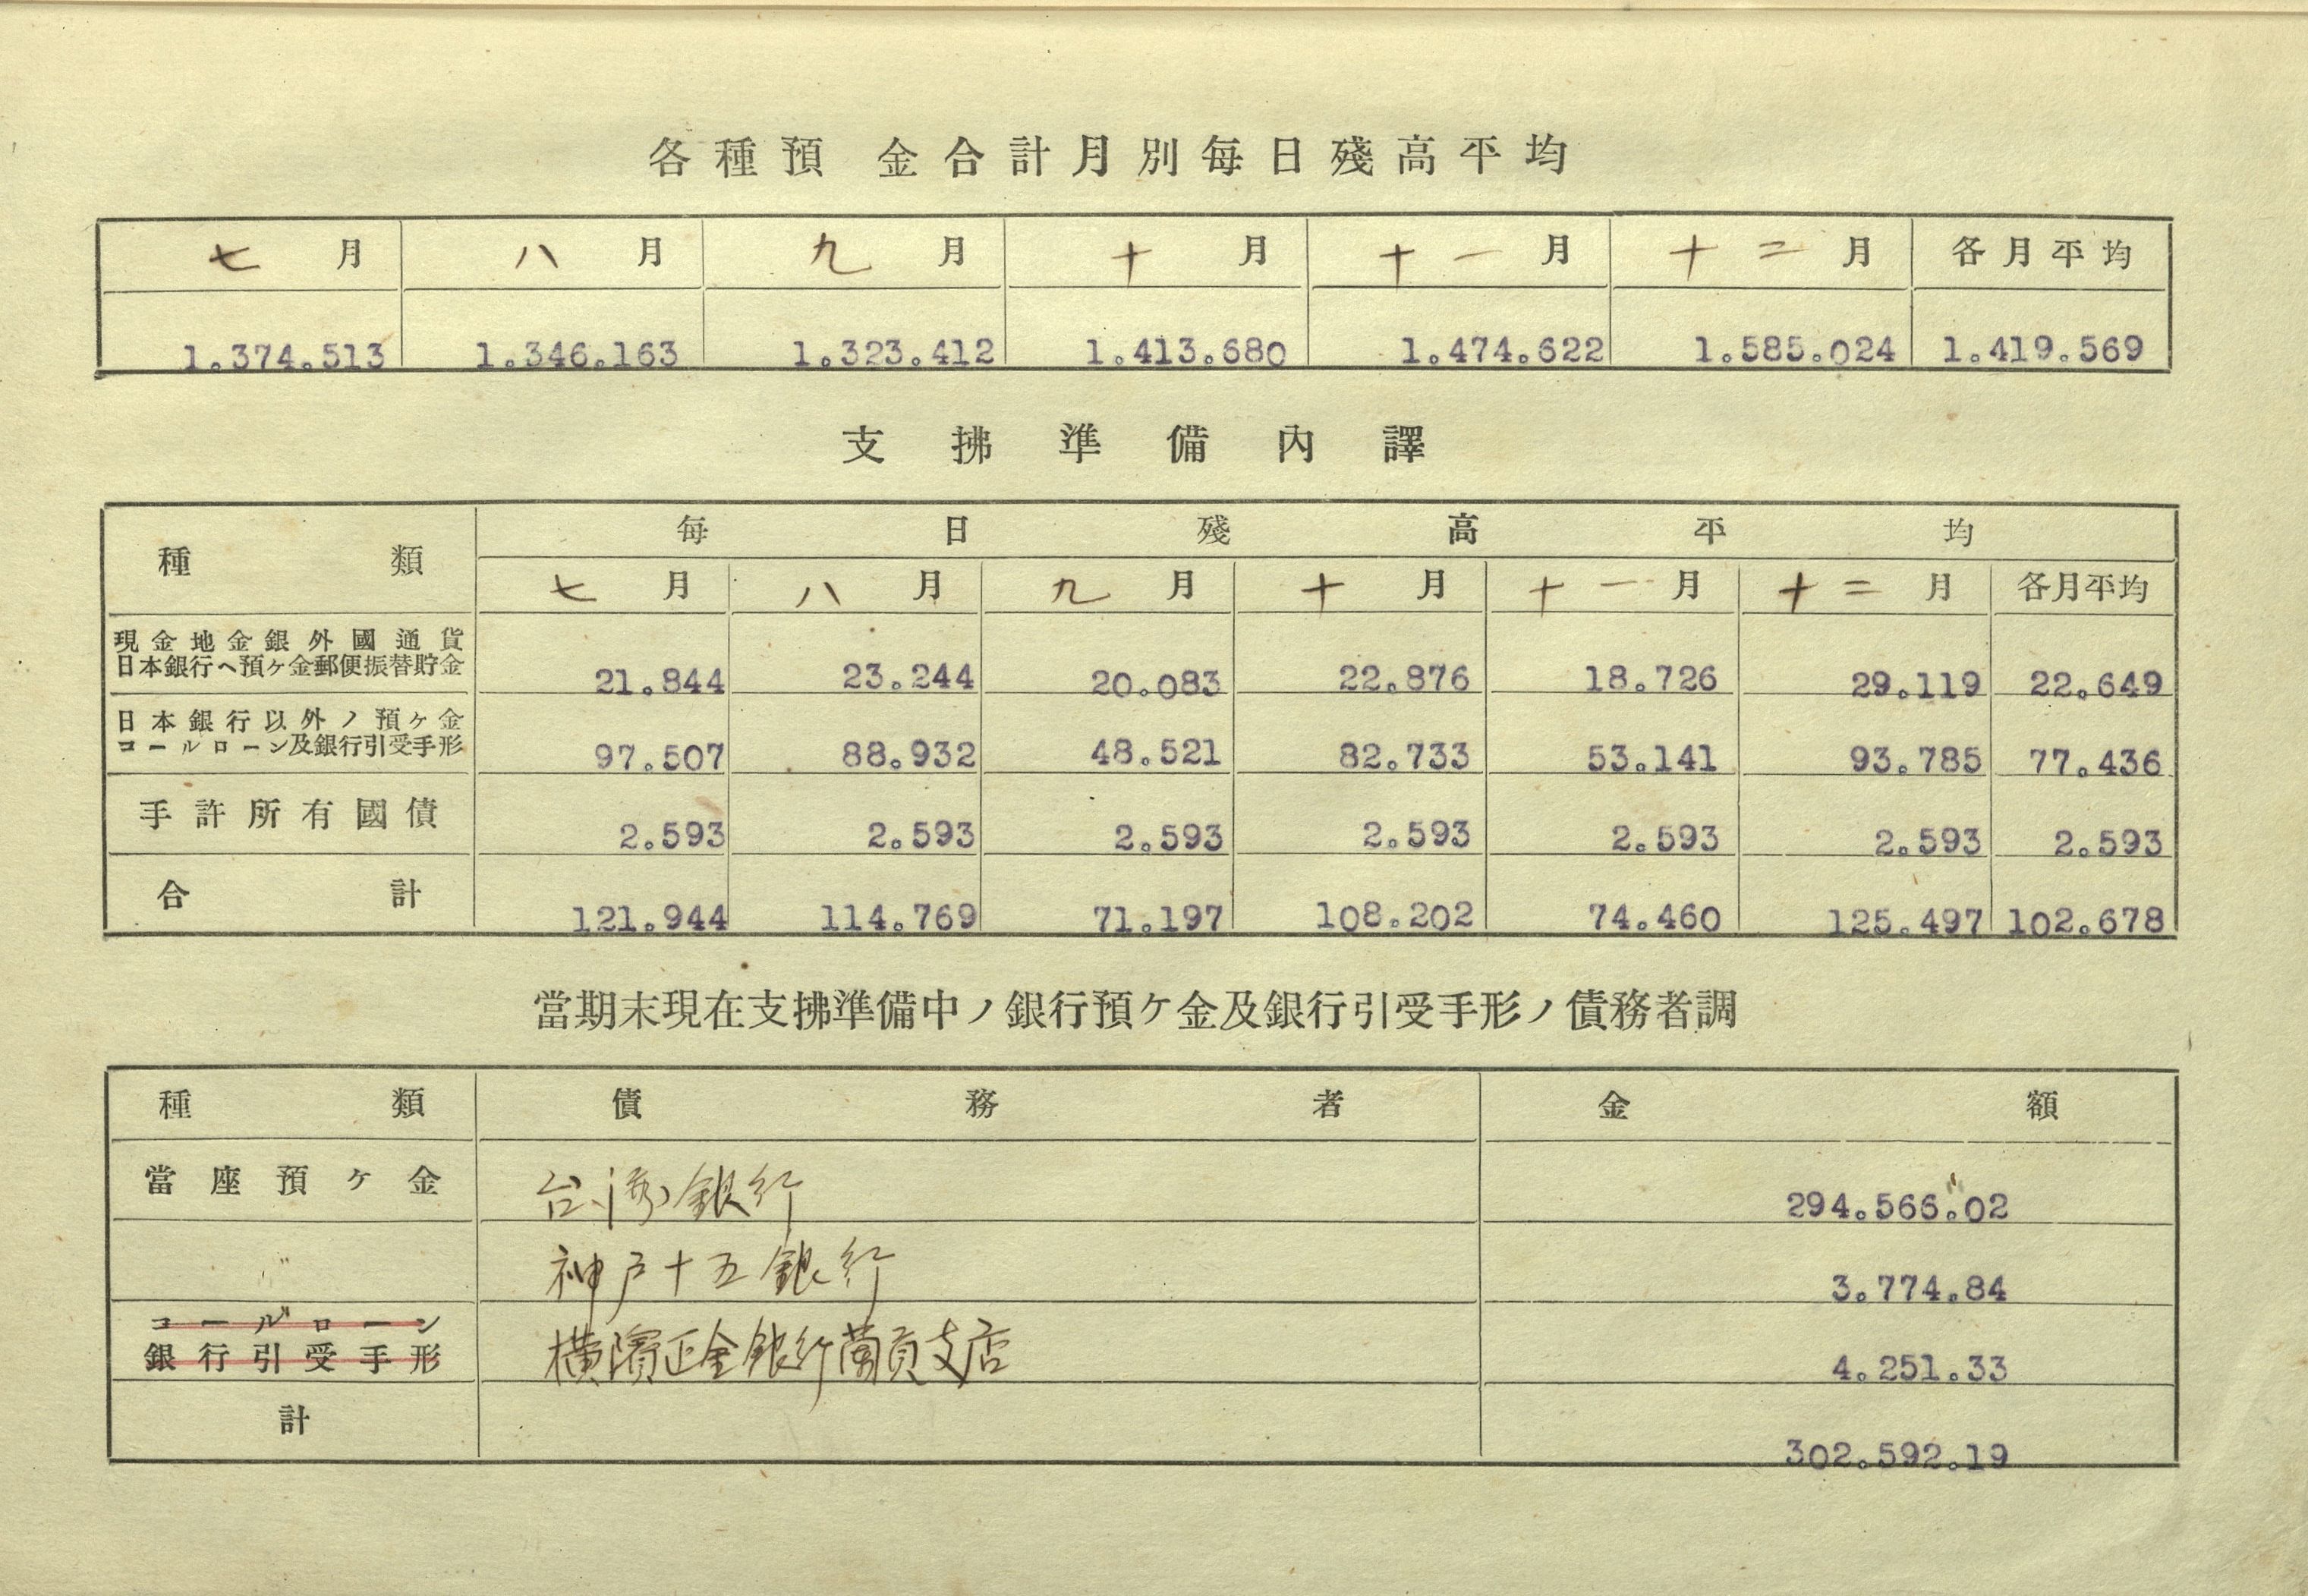 各種預金合計月別每日殘高平均
七月 八月 九月 十月 十一月 十二月 各月平均
1.374.513 1.346.163 1.323.412 1.413.680 1.474.622 1.585.024 1.419.569
支拂準備內譯
種類 每日殘高平均
七月 八月 九月 十月 十一月 十二月 各月平均
現金地金銀外國通貨
日本銀行ヘ預ヶ金郵便振替貯金 21.844 23.244 20.083 22.876 18.726 29.119 22.649
日本銀行以外ノ預ヶ金
コールローン及銀行引受手形 97.507 88.932 48.521 82.733 53.141 93.785 77.436
手許所有國債 2.593 2.593 2.593 2.593 2.593 2.593 2.593
合計 121.944 114.769 71.197 108.202 74.460 125.497 102.678
當期末現在支拂準備中ノ銀行預ケ金及銀行引受手形ノ債務者調
種類 債務者 金額
當座預ケ金 台湾銀行 294.566.02
〃 神戸十五銀行 3.774.84
コールローン
銀行引受手形 横濱正金銀行蘭貢支店 4.251.33
計 302.592.19